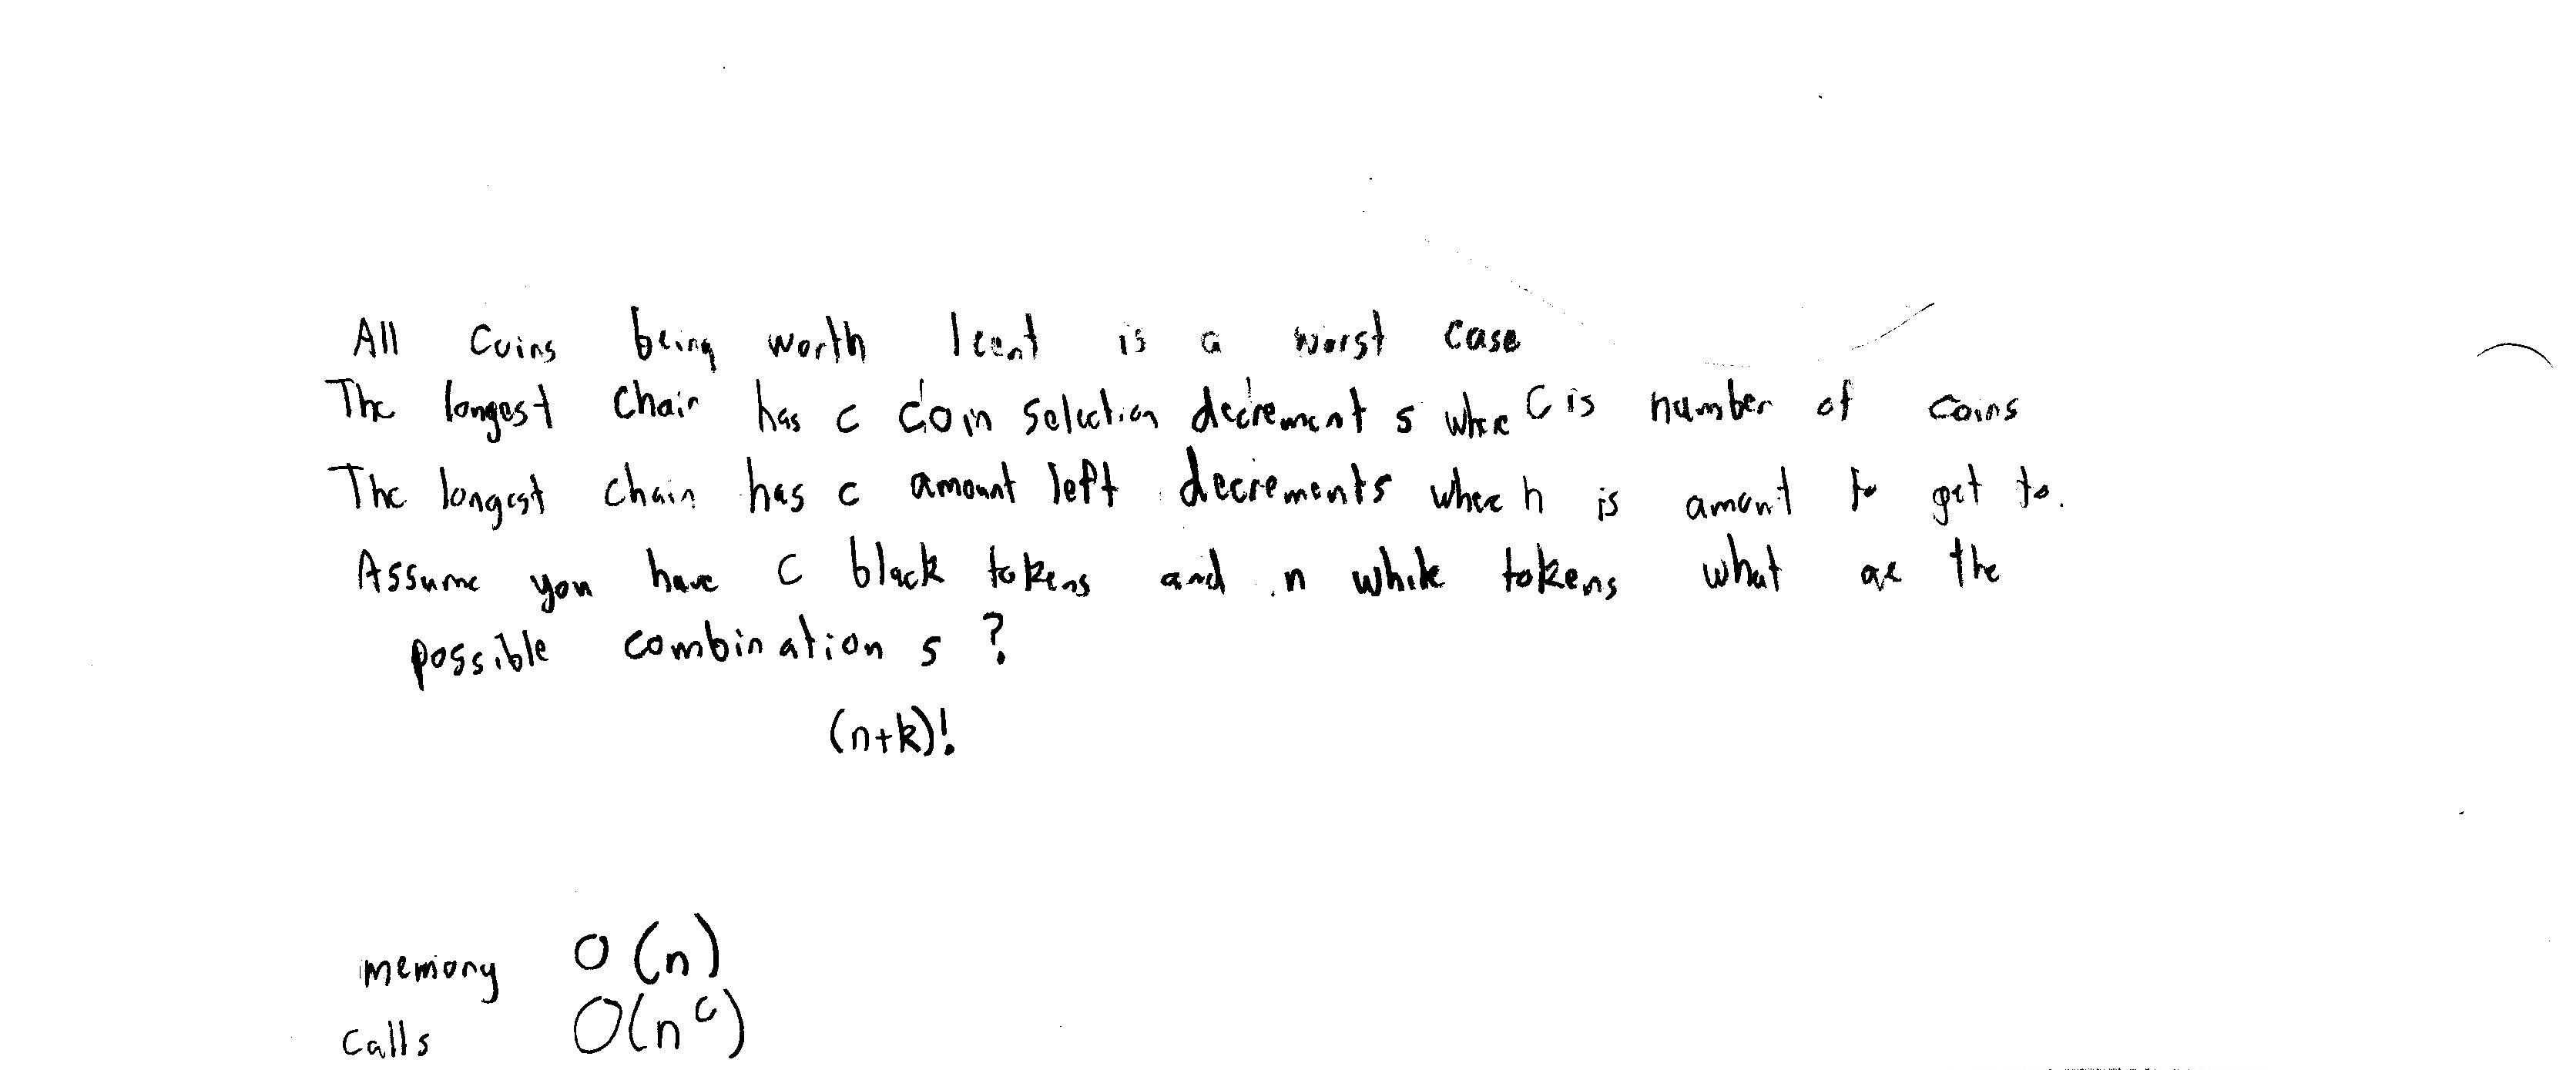 All coins being worth 1cent is a worst case
The longest chain has c coin selection decrement s where C is number of coins
The longest chain has c amount left decrements where n is amount to get to.
Assume you have C black tokens and n white tokens what are the
possible combination s ?
(n+k)!
memory O(n)
Calls O(n^c)